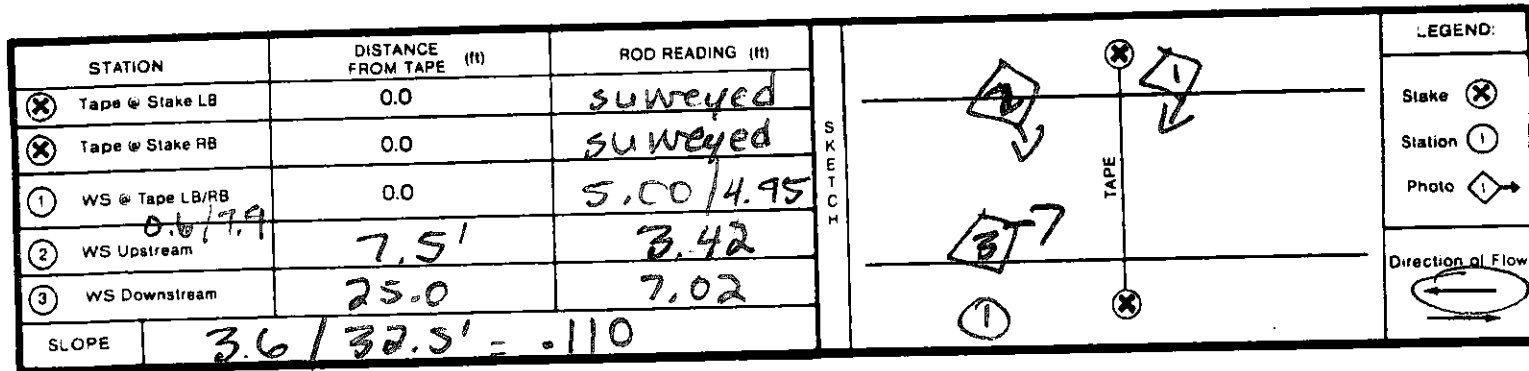 STATION DISTANCE FROM TAPE (ft) ROD READING (ft)
Tape @ Stake LB 0.0 surveyed
Tape @ Stake RB 0.0 surveyed
1 WS @ Tape LB/RB 0.0 5.00/4.95
0.6/7.9
2 WS Upstream 7.5' 3.42
3 WS Downstream 25.0 7.02
SLOPE 3.6 / 32.5' = .110
SKETCH
2 1
TAPE
3
1
LEGEND:
Stake
Station 1
Photo 1
Direction of Flow